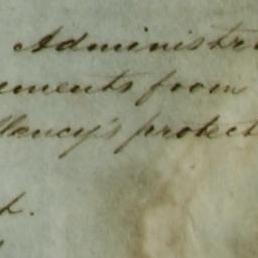 Administr
ements from
llancy's protect
d.